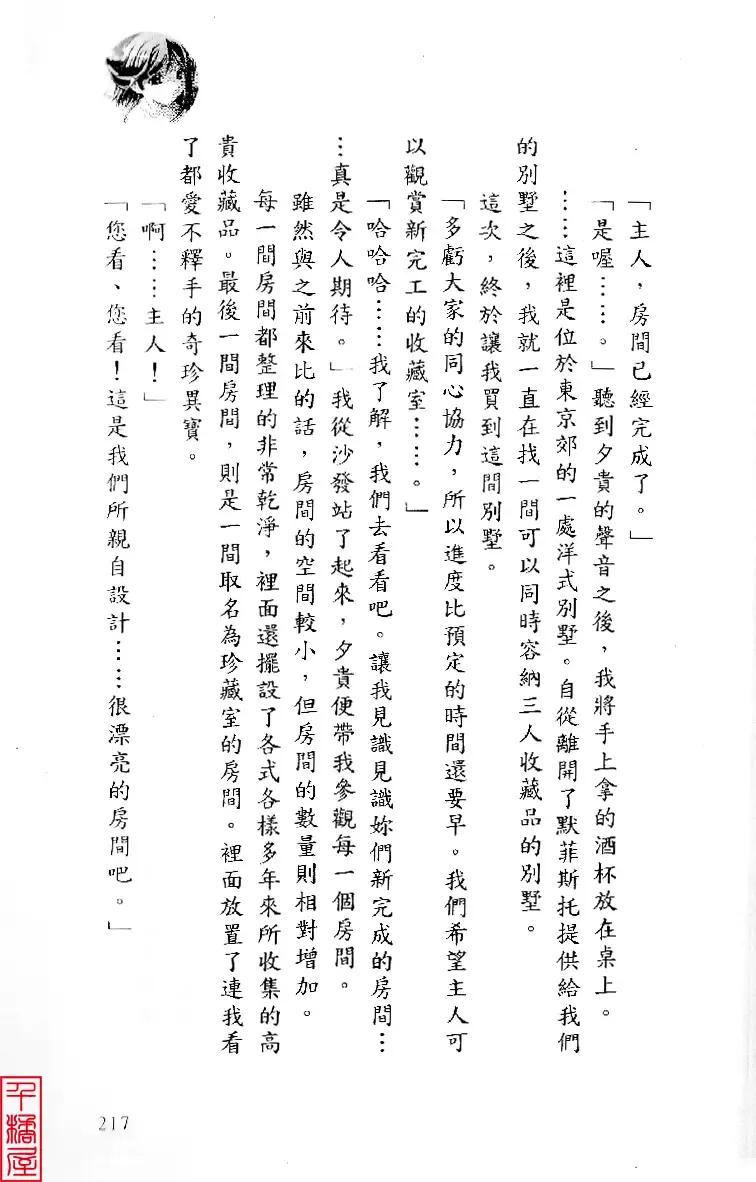 「主人，房間已經完成了。」
「是喔……。」聽到夕貴的聲音之後，我將手上拿的酒杯放在桌上。
……這裡是位於東京郊的一處洋式別墅。自從離開了默菲斯托提供給我們
的別墅之後，我就一直在找一間可以同時容納三人收藏品的別墅。
這次，終於讓我買到這間別墅。
「多虧大家的同心協力，所以進度比預定的時間還要早。我們希望主人可
以觀賞新完工的收藏室……。」
「哈哈哈……我了解，我們去看看吧。讓我見識見識妳們新完成的房間…
…真是令人期待。」我從沙發站了起來，夕貴便帶我參觀每一個房間。
雖然與之前來比的話，房間的空間較小，但房間的數量則相對增加。
每一間房間都整理的非常乾淨，裡面還擺設了各式各樣多年來所收集的高
貴收藏品。最後一間房間，則是一間取名為珍藏室的房間。裡面放置了連我看
了都愛不釋手的奇珍異寶。
「啊……主人！」
「您看、您看！這是我們所親自設計……很漂亮的房間吧。」
217
千橘屋